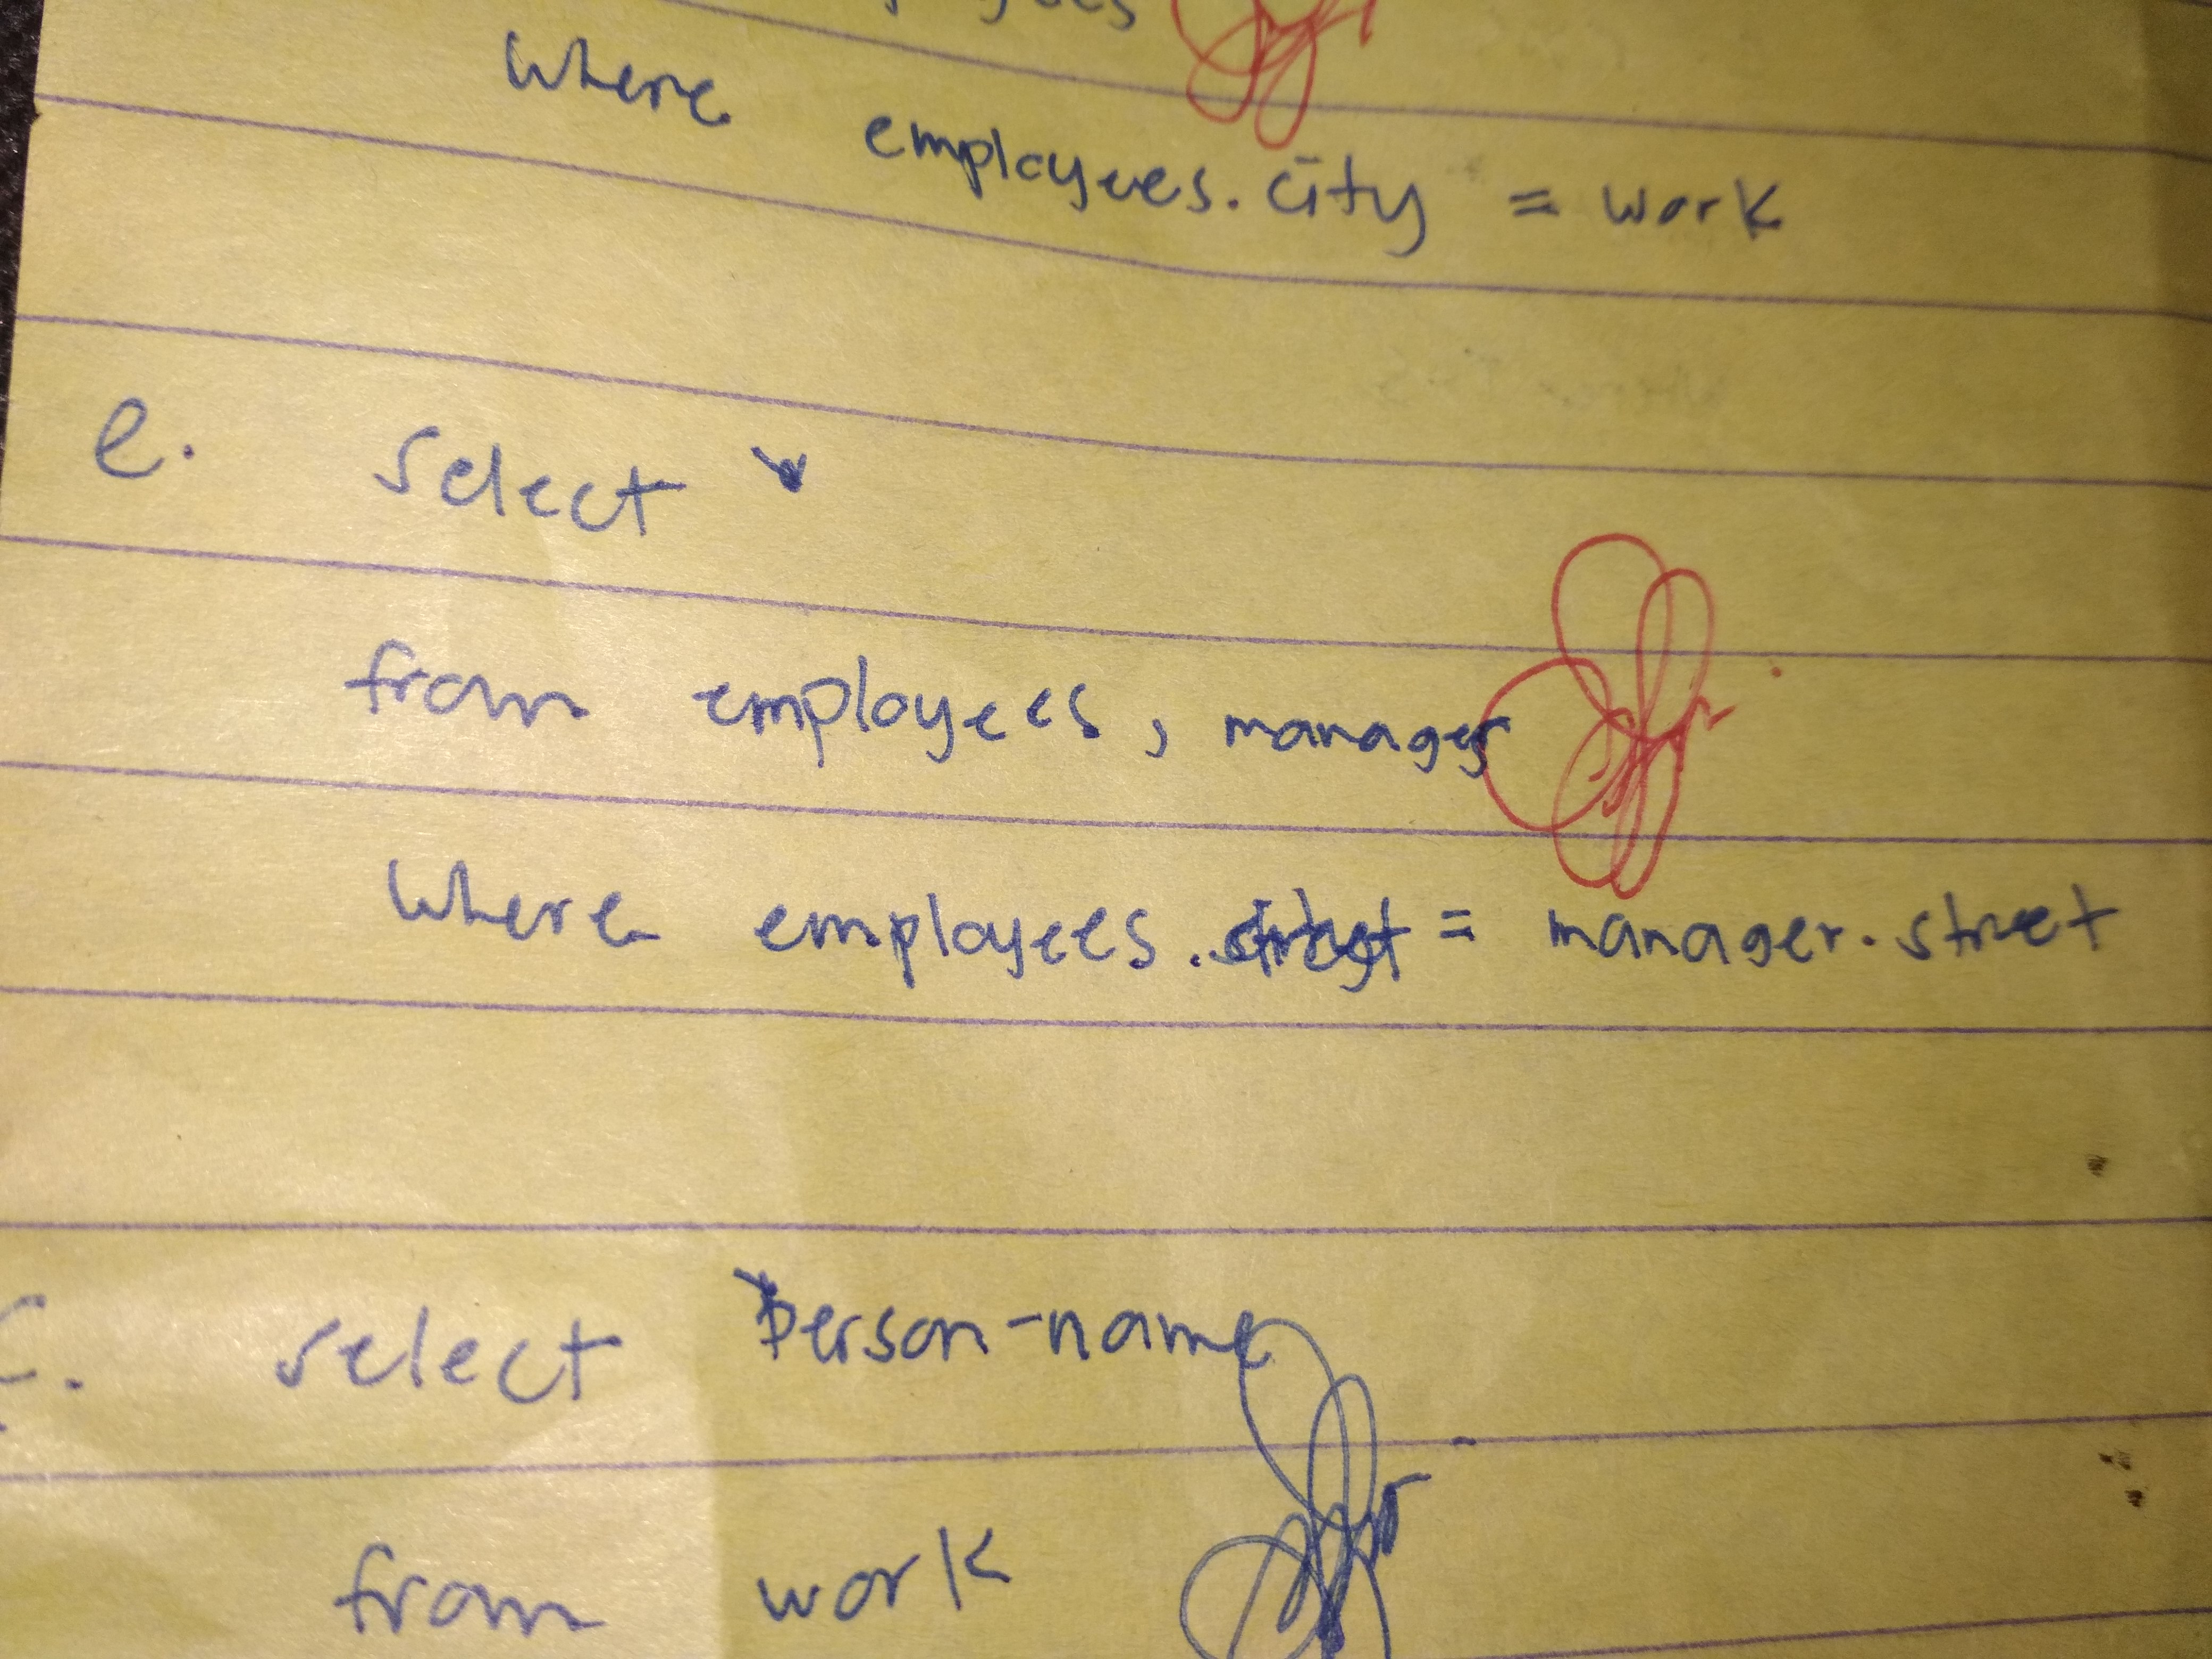 where employees.city = work
e. select *
from employees, manager
where employees.street = manager.street
select person-name
from work